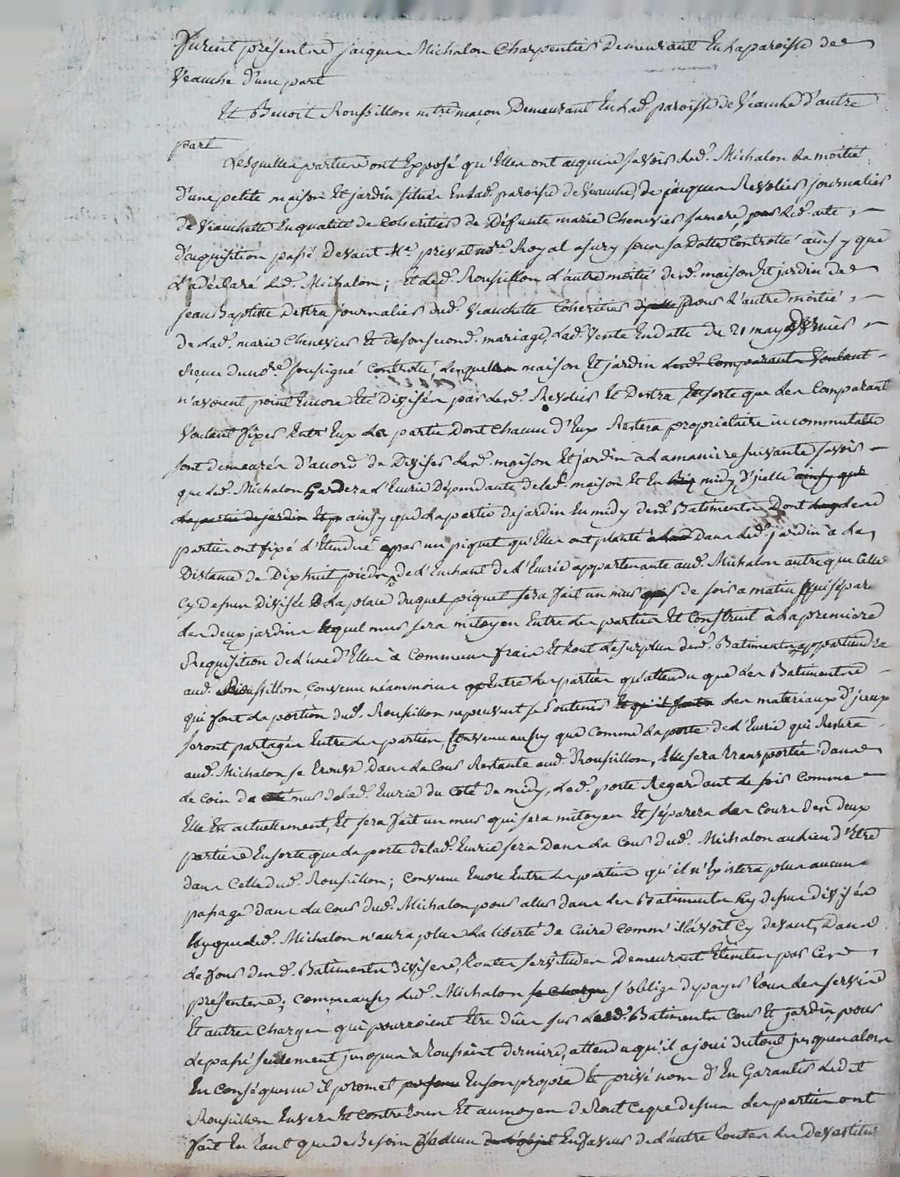 Furent présents jacques Michalon Charpentier Demeurant En la paroisse de
Veauche d'une part
Et Benoit Roussillon me maçon Demeurant En lad. paroisse de Veauche d'autre
part
Lesquelles parties ont Exposé qu'Elles ont acquises savoir led. Michalon la moitié
d'une petite maison Et jardin située En lad. paroisse de Veauche, de jacques Revolier journalier
de Veauchette En qualité de Coheritier de Défunte marie Chenevier sa mere, par led. acte
d'acquisition passé Devant Me preval nore Royal a sury sous sa Datte Controllé ainsy que
l'a déclaré led. Michalon; Et led. Roussillon l'autre moitié desd. maison Et jardin de
jean Baptiste Destra journalier dud. Veauchette Coheritier pour l'autre moitié
de lad. marie Chenevier Et de son second mariage, lad. Vente En datte du 21 may dernier
Reçue du nore soussigné Controllé, lesquelles maison Et jardin lesd. Comparants Voulant
n'avoient point Encore Eté Divisés par lesd. Revolier Et Destra, En sorte que les Comparants
Voulant fixer Entr'Eux les parties Dont Chacun d'Eux Restera propriétaire incommutable
sont demeurés d'accord de Diviser lesd. maison Et jardin a la maniere suivante savoir
que led. Michalon Gardera l'Ecurie Dépendante de lad. maison Et En midy d'jcelle ainsy que
la partie de jardin Et ainsy que la partie de jardin En midy desd. Batiments Dont les
parties ont fixé l'Etendue par un piquet qu'Elles ont planté Dans led. jardin à la
Distance de Dix huit pieds de l'Enchant de l'Ecurie appartenante aud. Michalon autre que Celle
Cy dessus Divisée à la place duquel piquet sera fait un mur de soir a matin qui sépare
les deux jardins lequel mur sera mitoyen Entre les parties Et Construit à la premiere
Requisition de l'une d'Elles à Communs frais Et tout le surplus desd. Batiments appartiendra
aud. Roussillon, Convenu néammoins Entre les parties qu'attendu que les Batiments
qui font la portion dud. Roussillon ne peuvent se soutenir Et qu'il faut les materiaux d'jceux
seront partagés Entre les parties, Convenu aussy que Comme la porte de l'Ecurie qui Restera
aud. Michalon se trouve Dans la Cour Restante aud. Roussillon, Elle sera transportée dans
le coin du mur de lad. Ecurie du Coté de midy, lad. porte Regardant le soir Comme
Elle Est actuellement, Et sera fait un mur qui sera mitoyen Et séparera les Cours des deux
parties En sorte que la porte de lad. Ecurie sera Dans la Cour dud. Michalon au lieu d'Etre
dans Celle dud. Roussillon; Convenu Encore Entre les parties qu'il n'Existera plus aucun
passage dans la Cour dud. Michalon pour aller dans les Batiments Cy dessus divisés
Et que led. Michalon n'aura plus la liberté de Cuire Comm'il l'avoit Cy devant, Dans
le four desd. Batiments divisés, toutes servitudes Demeurant Eteintes par Ces
présentes; Comme aussy led. Michalon se Charge s'oblige de payer tous les servis
Et autres Charges qui pourroient Etre dûes sur lesd. Batiments Cour Et jardin, pour
le passé seulement jusques à toussaint derniere, attendu qu'il a joui du tout jusques alors
En Conséquence il promet En son propre Et privé nom d'En Garantir led. it
Roussillon Envers Et Contre tous Et au moyen de tout Ce que dessus les parties ont
fait En tant que de Besoin l'un En faveur de l'autre toutes les Devestitures